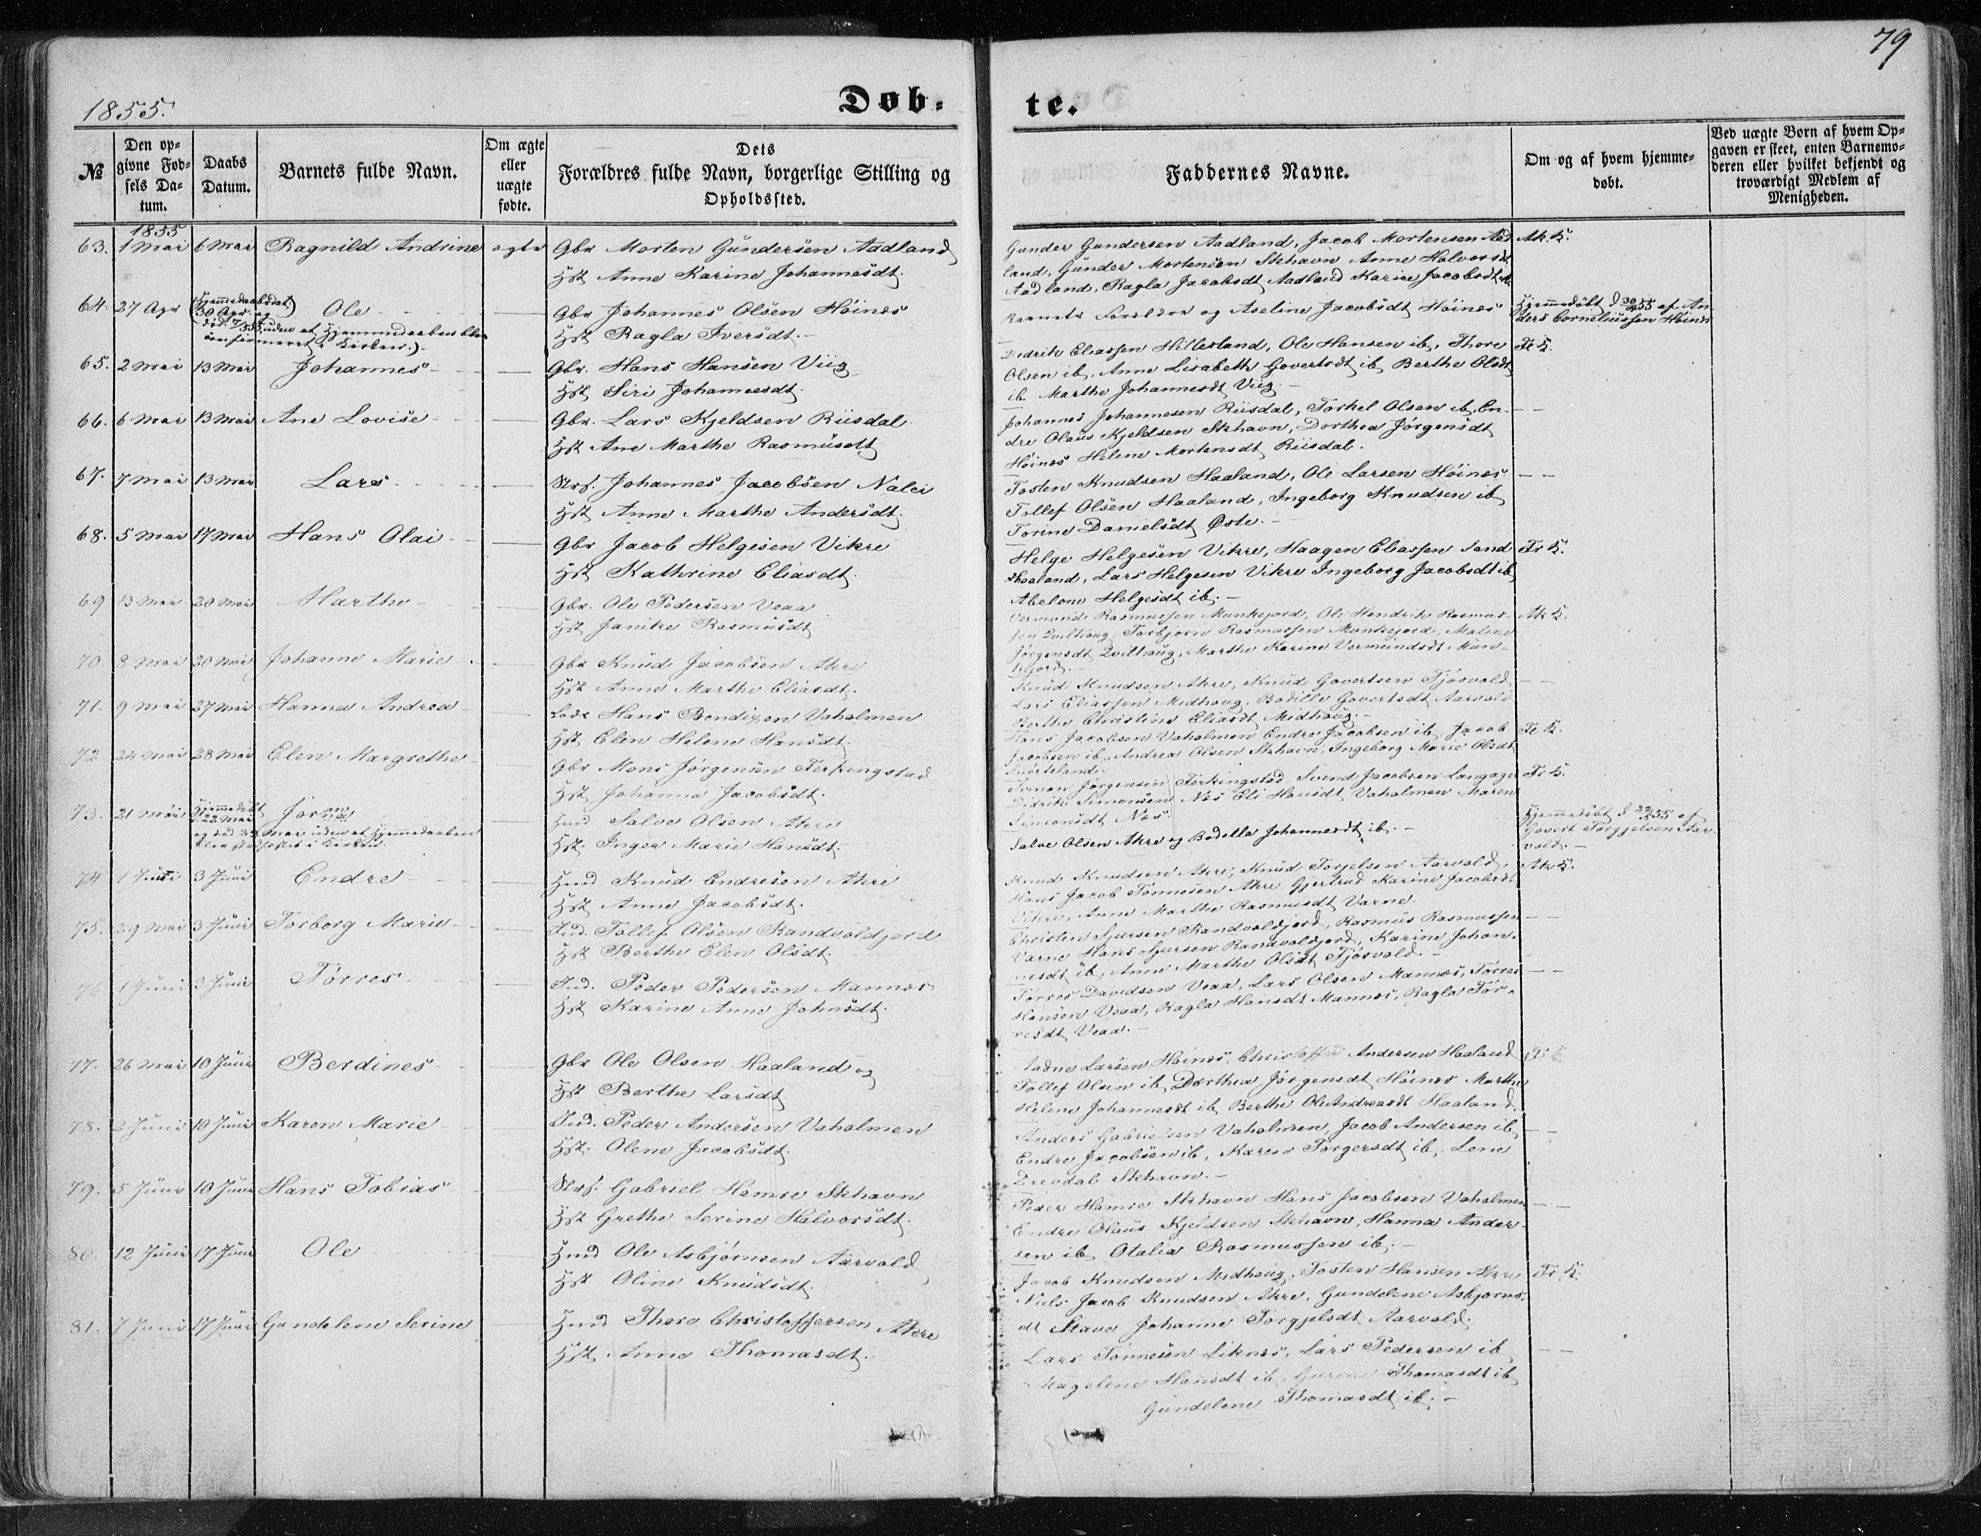 79
1855.
Døb-
te.
№
Den op-
givne Fød-
sels Da-
tum.
Daabs
Datum.
Barnets fulde Navn.
Om ægte
eller
uægte
fødte.
Dets
Forældres fulde Navn, borgerlige Stilling og
Opholdssted.
Faddernes Navne.
Om og af hvem hjemme-
døbt.
Ved uægte Børn af hvem Op-
gaven er skeet, enten Barnemo-
deren eller hvilket bekjendt og
troværdigt Medlem af
Menigheden.
1855
63. 1 Mai 6 Mai Ragnild Andrine ægte Gbr Morten Gundersen Aadland
Hst Anne Karine Johannesdt.
Gunder Gundersen Aadland, Jacob Mortensen Aad Ak. K.
land, Gunder Mortensen Skhavn Anne Halvorsdt
Aadland, Ragla Jacobsdt Aadland Karine Jacobsdt
64. 27 Apr (Hjemmedaabsdat
30 Apr. og) Ole Gbr Johannes Olsen Høines
død 7/5 55, uden at Hjemmedaaben blev
confirmeret i Kirken.) Hst Ragla Iversdt.
Barnets Forældre og Aseline Jacobsdt Høines
Hjemmedøbt d 30/4 55 af An
ders Corneliussen Høines
65. 2 Mai 13 Mai Johannes Gbr. Hans Hansen Viig
Hst Siri Johannesdt.
Didrik Eliassen Hillesland, Ole Hansen ib, Thore Fe K.
Olsen ib, Anne Lisabeth Govertsdt ib Berthe Olsdt
ib Marthe Johannesdt Viig.
66. 6 Mai 13 Mai Ane Lovise Gbr. Lars Kjeldsen Riisdal
Hst Ane Marthe Rasmusdt
Johannes Johannesen Riisdal, Torkel Olsen ib, En-
dre Olaus Kjeldsen Skhavn, Dorthea Jørgensdt
Høines Helene Mortensdt Riisdal.
67. 7 Mai 13 Mai Lars Strf. Johannes Jacobsen Nalei
Hst Anne Marthe Andersdt.
Tosten Knudsen Haaland, Ole Larsen Høines
Tollef Olsen Haaland, Ingeborg Knudsen ib
Torine Danielsdt Øste.
68. 5 Mai 17 Mai Hans Olai Gbr Jacob Helgesen Vikre
Hst Kathrine Eliasdt.
Helge Helgesen Vikre, Haagen Eliassen Sand Fr K.
Lars Helgesen Vikre Ingeborg Jacobsdt ib
Abelone Helgesdt ib.
69 13 Mai 20 Mai Marthe Gbr. Ole Pedersen Veaa
Hst Janike Rasmusdt
Vermund Rasmussen Munkejord, Ole Hendrik Rasmus- Ak K.
sen Qvilhaug, Torbjørn Rasmussen Munkejord, Malene
Jørgensdt Qvilhaug, Marthe Karine Vermundsdt Mun-
kejord.
70 8 Mai 20 Mai Johanne Marie Gbr Knud Jacobsen Akre
Hst Anne Marthe Eliasdt.
Knud Knudsen Akre, Knud Govertsen Tjøsvold,
Lars Eliassen Midhaug, Bodille Govertsdt Aarvold
Berthe Christine Eliasdt Midhaug.
71. 9 Mai 27 Mai Hanna Andrea Lods Hans Bendixen Vaholmen
Hst Elen Helene Hansdt.
Hans Jacobsen Vaholmen Endre Jacobsen ib, Jacob Fe K.
Jacobsen ib, Andrea Olsen Skhavn, Ingeborg Marie Olsdt
72 24 Mai 28 Mai Elen Margrethe Gbr Mons Jørgensen Ferkingstad
Hst Johanna Jacobsdt.
Simon Jørgensen Ferkingstad, Svend Jacobsen Langager Fr K.
Didrik Simonsen Næs Eli Hansdt Vaholmen Maren
Simonsdt Næs.
73. 21 Mai Hjemmedøbt
22 Mai
og død 23 Mai uden at Hjemmedaaben
blev stadfæstet i Kirken. Hmd Salve Olsen Akre
Hst. Inger Marie Hansdt.
Salve Olsen Akre og Bodella Johannesdt ib.
Hjemmedøbt d 22/5 55 af
Govert Torgjelsen Aar-
vold.
74 1 Juni 3 Juni Endre Hmd Knud Endresen Akre
Hst Anne Jacobsdt.
Knud Knudsen Akre, Knud Torgjelsen Aarvold, Ak K.
Hans Jacob Tønnesen Akre, Gjertrud Karine Jacobsdt
Vikre, Anne Marthe Rasmusdt Varne.
75. 29 Mai 3 Juni Torborg Marie Ind. Tollef Olsen Sandvoldjord
Hst Berthe Elen Olsdt.
Christen Sjursen Sandvoldjord, Rasmus Rasmussen
Varne Hans Sjursen Sandvoldjord, Karine Johan-
nesdt ib, Anne Marthe Olsdt Tjøsvold.
76 1 Juni 3 Juni Tørres Ind. Peder Pedersen Mannes
Hst Karine Anne Johnsdt.
Tørres Davidsen Veaa, Lars Olsen Mannes, Tørres
Hansen Veaa, Ragla Hansdt Mannes, Ragla Tør-
resdt Veaa.
77. 26 Mai 10 Juni Berdines Gbr Ole Olsen Haaland og
Hst Berthe Larsdt.
Ladne Larsen Høines, Christoffer Andersen Haaland
Tollef Olsen ib, Dorthea Jørgensdt Høines Marthe
Helene Johannesdt ib, Berthe Ole Andreasdt Haaland
78. 2 Juni 10 Juni Karen Marie Ind. Peder Andersen Vaholmen
Hst. Olene Jacobsdt.
Anders Gabrielsen Vaholmen, Jacob Andersen ib,
Endre Jacobsen ib, Karen Torgersdt ib, Lene
Drevdal Skhavn.
79. 5 Juni 10 Juni Hans Tobias Strf. Gabriel Hamre Skhavn
Hst Grethe Serine Halvorsdt.
Peder Hamre Skhavn Hans Jacobsen Vaholmen
Endre Olaus Kjeldsen Skhavn, Hanna Ander-
sen ib Otalia Rasmussen ib.
80. 12 Juni 17 Juni Ole Hmd Ole Asbjørnsen Aarvold,
Hst Oline Knudsdt.
Jacob Knudsen Midhaug, Tosten Hansen Akre Fr. K.
Niels Jacob Knudsen Akre, Gundelene Asbjørns-
dt Stave Johanne Torgjelsdt Aarvold.
81. 7 Juni 17 Juni Gundelene Serine Hmd Thore Christoffersen Akre
Hst. Anne Thomasdt.
Lars Tønnesen Liknes, Lars Pedersen ib
Magelene Hansdt ib, Gurine Thomasdt ib
Gundelene Thomasdt ib.